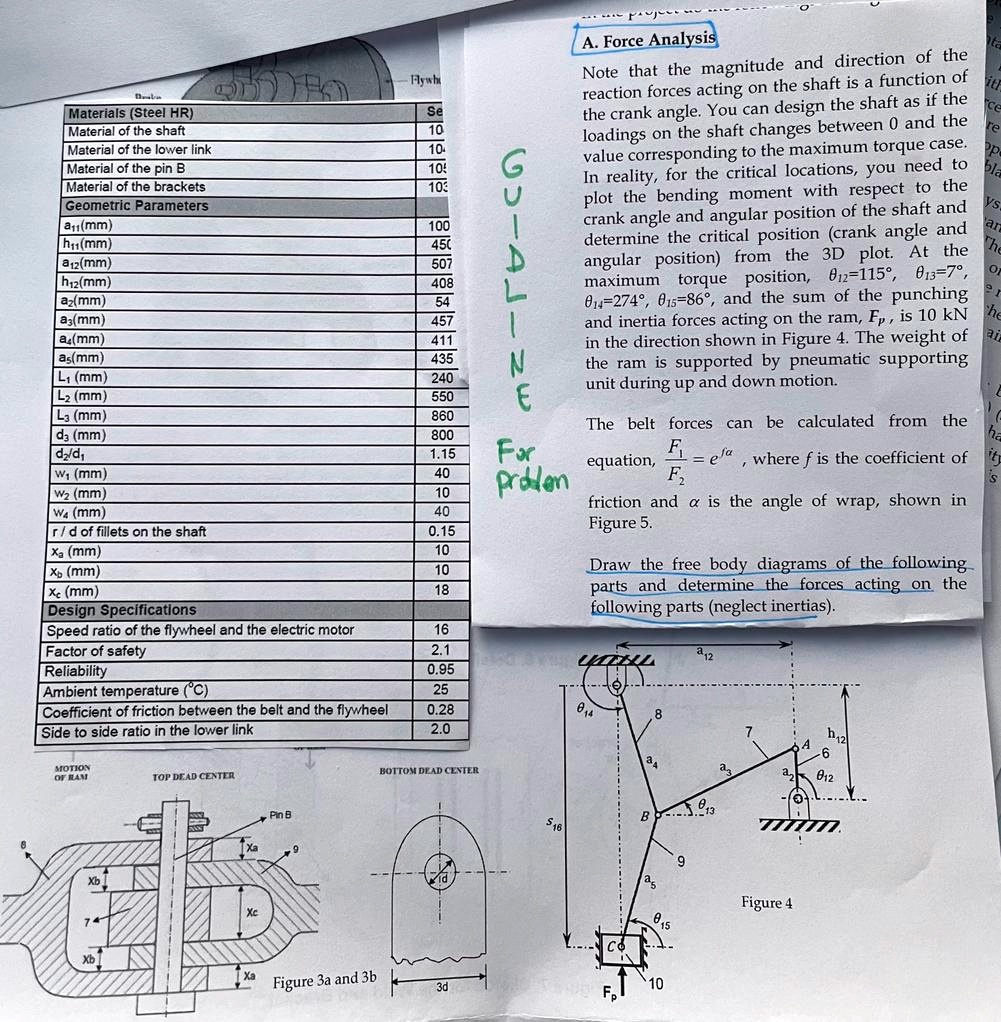 Flywh
Materials (Steel HR) Se
Material of the shaft 10
Material of the lower link 10
Material of the pin B 10
Material of the brackets 103
Geometric Parameters
a₁₁(mm) 100
h₁₁(mm) 450
a₁₂(mm) 507
h₁₂(mm) 408
a₂(mm) 54
a₃(mm) 457
a₄(mm) 411
a₅(mm) 435
L₁ (mm) 240
L₂ (mm) 550
L₃ (mm) 860
d₃ (mm) 800
d₂/d₁ 1.15
w₁ (mm) 40
w₂ (mm) 10
w₄ (mm) 40
r / d of fillets on the shaft 0.15
xₐ (mm) 10
x_b (mm) 10
x_c (mm) 18
Design Specifications
Speed ratio of the flywheel and the electric motor 16
Factor of safety 2.1
Reliability 0.95
Ambient temperature (°C) 25
Coefficient of friction between the belt and the flywheel 0.28
Side to side ratio in the lower link 2.0
GUIDLINE
For
problem
A. Force Analysis
Note that the magnitude and direction of the
reaction forces acting on the shaft is a function of
the crank angle. You can design the shaft as if the
loadings on the shaft changes between 0 and the
value corresponding to the maximum torque case.
In reality, for the critical locations, you need to
plot the bending moment with respect to the
crank angle and angular position of the shaft and
determine the critical position (crank angle and
angular position) from the 3D plot. At the
maximum torque position, θ₁₂=115°, θ₁₃=7°,
θ₁₄=274°, θ₁₅=86°, and the sum of the punching
and inertia forces acting on the ram, Fₚ, is 10 kN
in the direction shown in Figure 4. The weight of
the ram is supported by pneumatic supporting
unit during up and down motion.
The belt forces can be calculated from the
equation, F₁/F₂ = e^fα , where f is the coefficient of
friction and α is the angle of wrap, shown in
Figure 5.
Draw the free body diagrams of the following
parts and determine the forces acting on the
following parts (neglect inertias).
MOTION
OF RAM
TOP DEAD CENTER
BOTTOM DEAD CENTER
Pin B
8
9
7
Xa
Xb
Xc
Xb
Xa
d
3d
Figure 3a and 3b
a₁₂
θ₁₄
8
7
A
6
h₁₂
a₄
a₃
a₂
θ₁₂
B
θ₁₃
S₁₆
9
a₅
θ₁₅
C
10
Fₚ
Figure 4